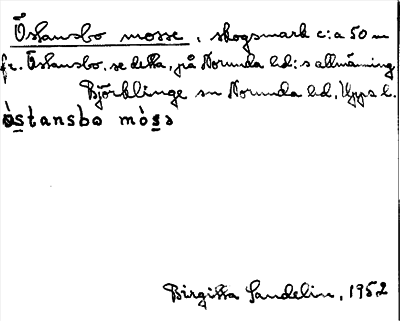 Östansbo mosse, skogsmark c:a 50 m
fr. Östansbo, se detta, på Norunda hd:s allmänning
Björklinge sn Norunda hd, Upps l.
òstansbo mòsə
Birgitta Sandelin, 1952